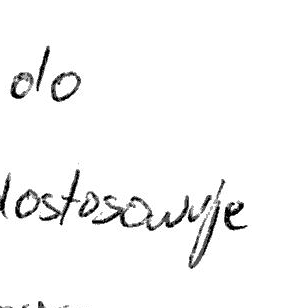 do
dostosowuje